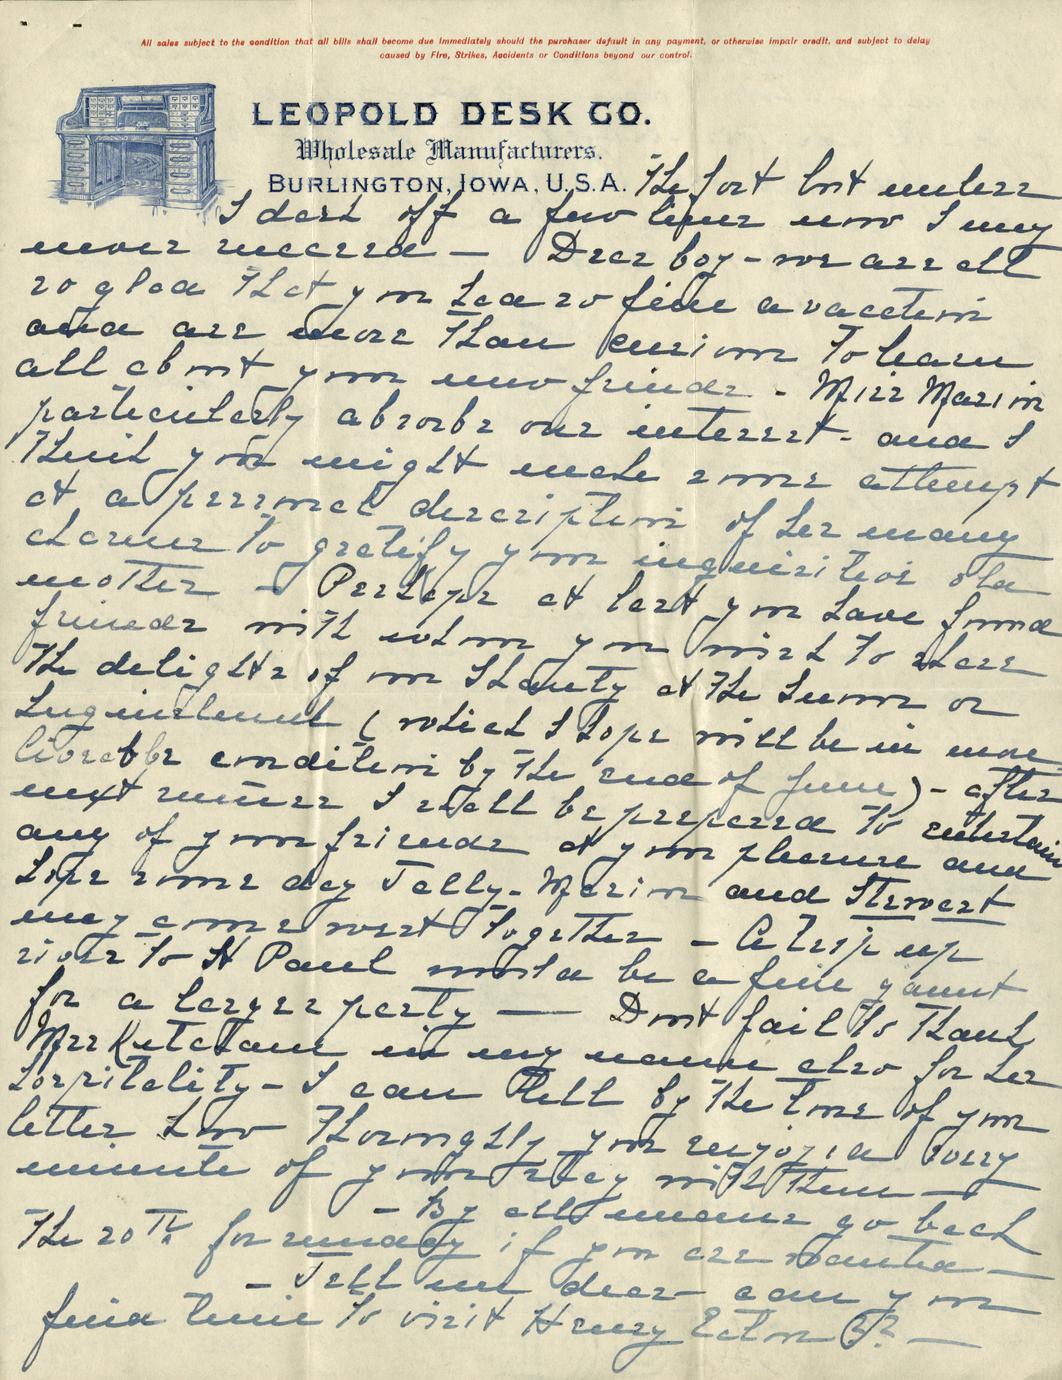 All sales subject to the condition that all bills shall become due immediately should the purchaser default in any payment, or otherwise impair credit, and subject to delay
caused by Fire, Strikes, Accidents or Conditions beyond our control.
LEOPOLD DESK CO.
Wholesale Manufacturers.
BURLINGTON, IOWA, U.S.A.
The fort but unless
I dash off a few lines now I may
never succeed — Dear boy - we are all
so glad that you had so fine a vacation
and are more than curious to learn
all about your new friends - Miss Marion
particularly absorbs our interest - and I
think you might make some attempt
at a personal description of her many
charms to gratify your inquisitive old
mother - Perhaps at last you have found
friends with whom you wish to share
the delights of our Shanty at the
(which I hope will be in more
liveable condition by the end of June) - after
next summer I shall be prepared to entertain
any of your friends at your pleasure and
hope some day Tally - Marion and Stewart
may come west together - A trip up
river to St Paul would be a fine jaunt
for a larger party — Dont fail to thank
Mrs Ketcham in my name also for her
hospitality - I can tell by the tone of your
letter how thoroughly you enjoyed every
minute of your stay with them —
- By all means go back
the 20th for sunday if you are wanted —
- Tell me dear can you
find time to visit Henry Eaton ?? —